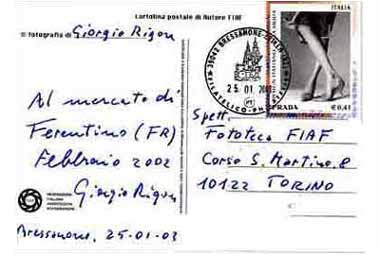 cartolina postale di Autore FIAF
© fotografia di Giorgio Rigon
Al mercato di
Ferentino (FR)
Febbraio 2002
Giorgio Rigon
Bressanone, 25-01-03
39042 BRESSANONE
25 01
ITALIA
PRADA € 0,41
Spett.
Fototeca FIAF
Corso S. Martino, 8
10122 TORINO